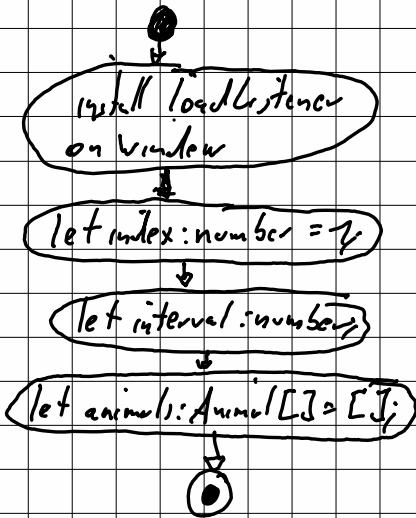 install loadListener
on window
let index:number = 1;
let interval:number;
let animals:Animal[] = [];